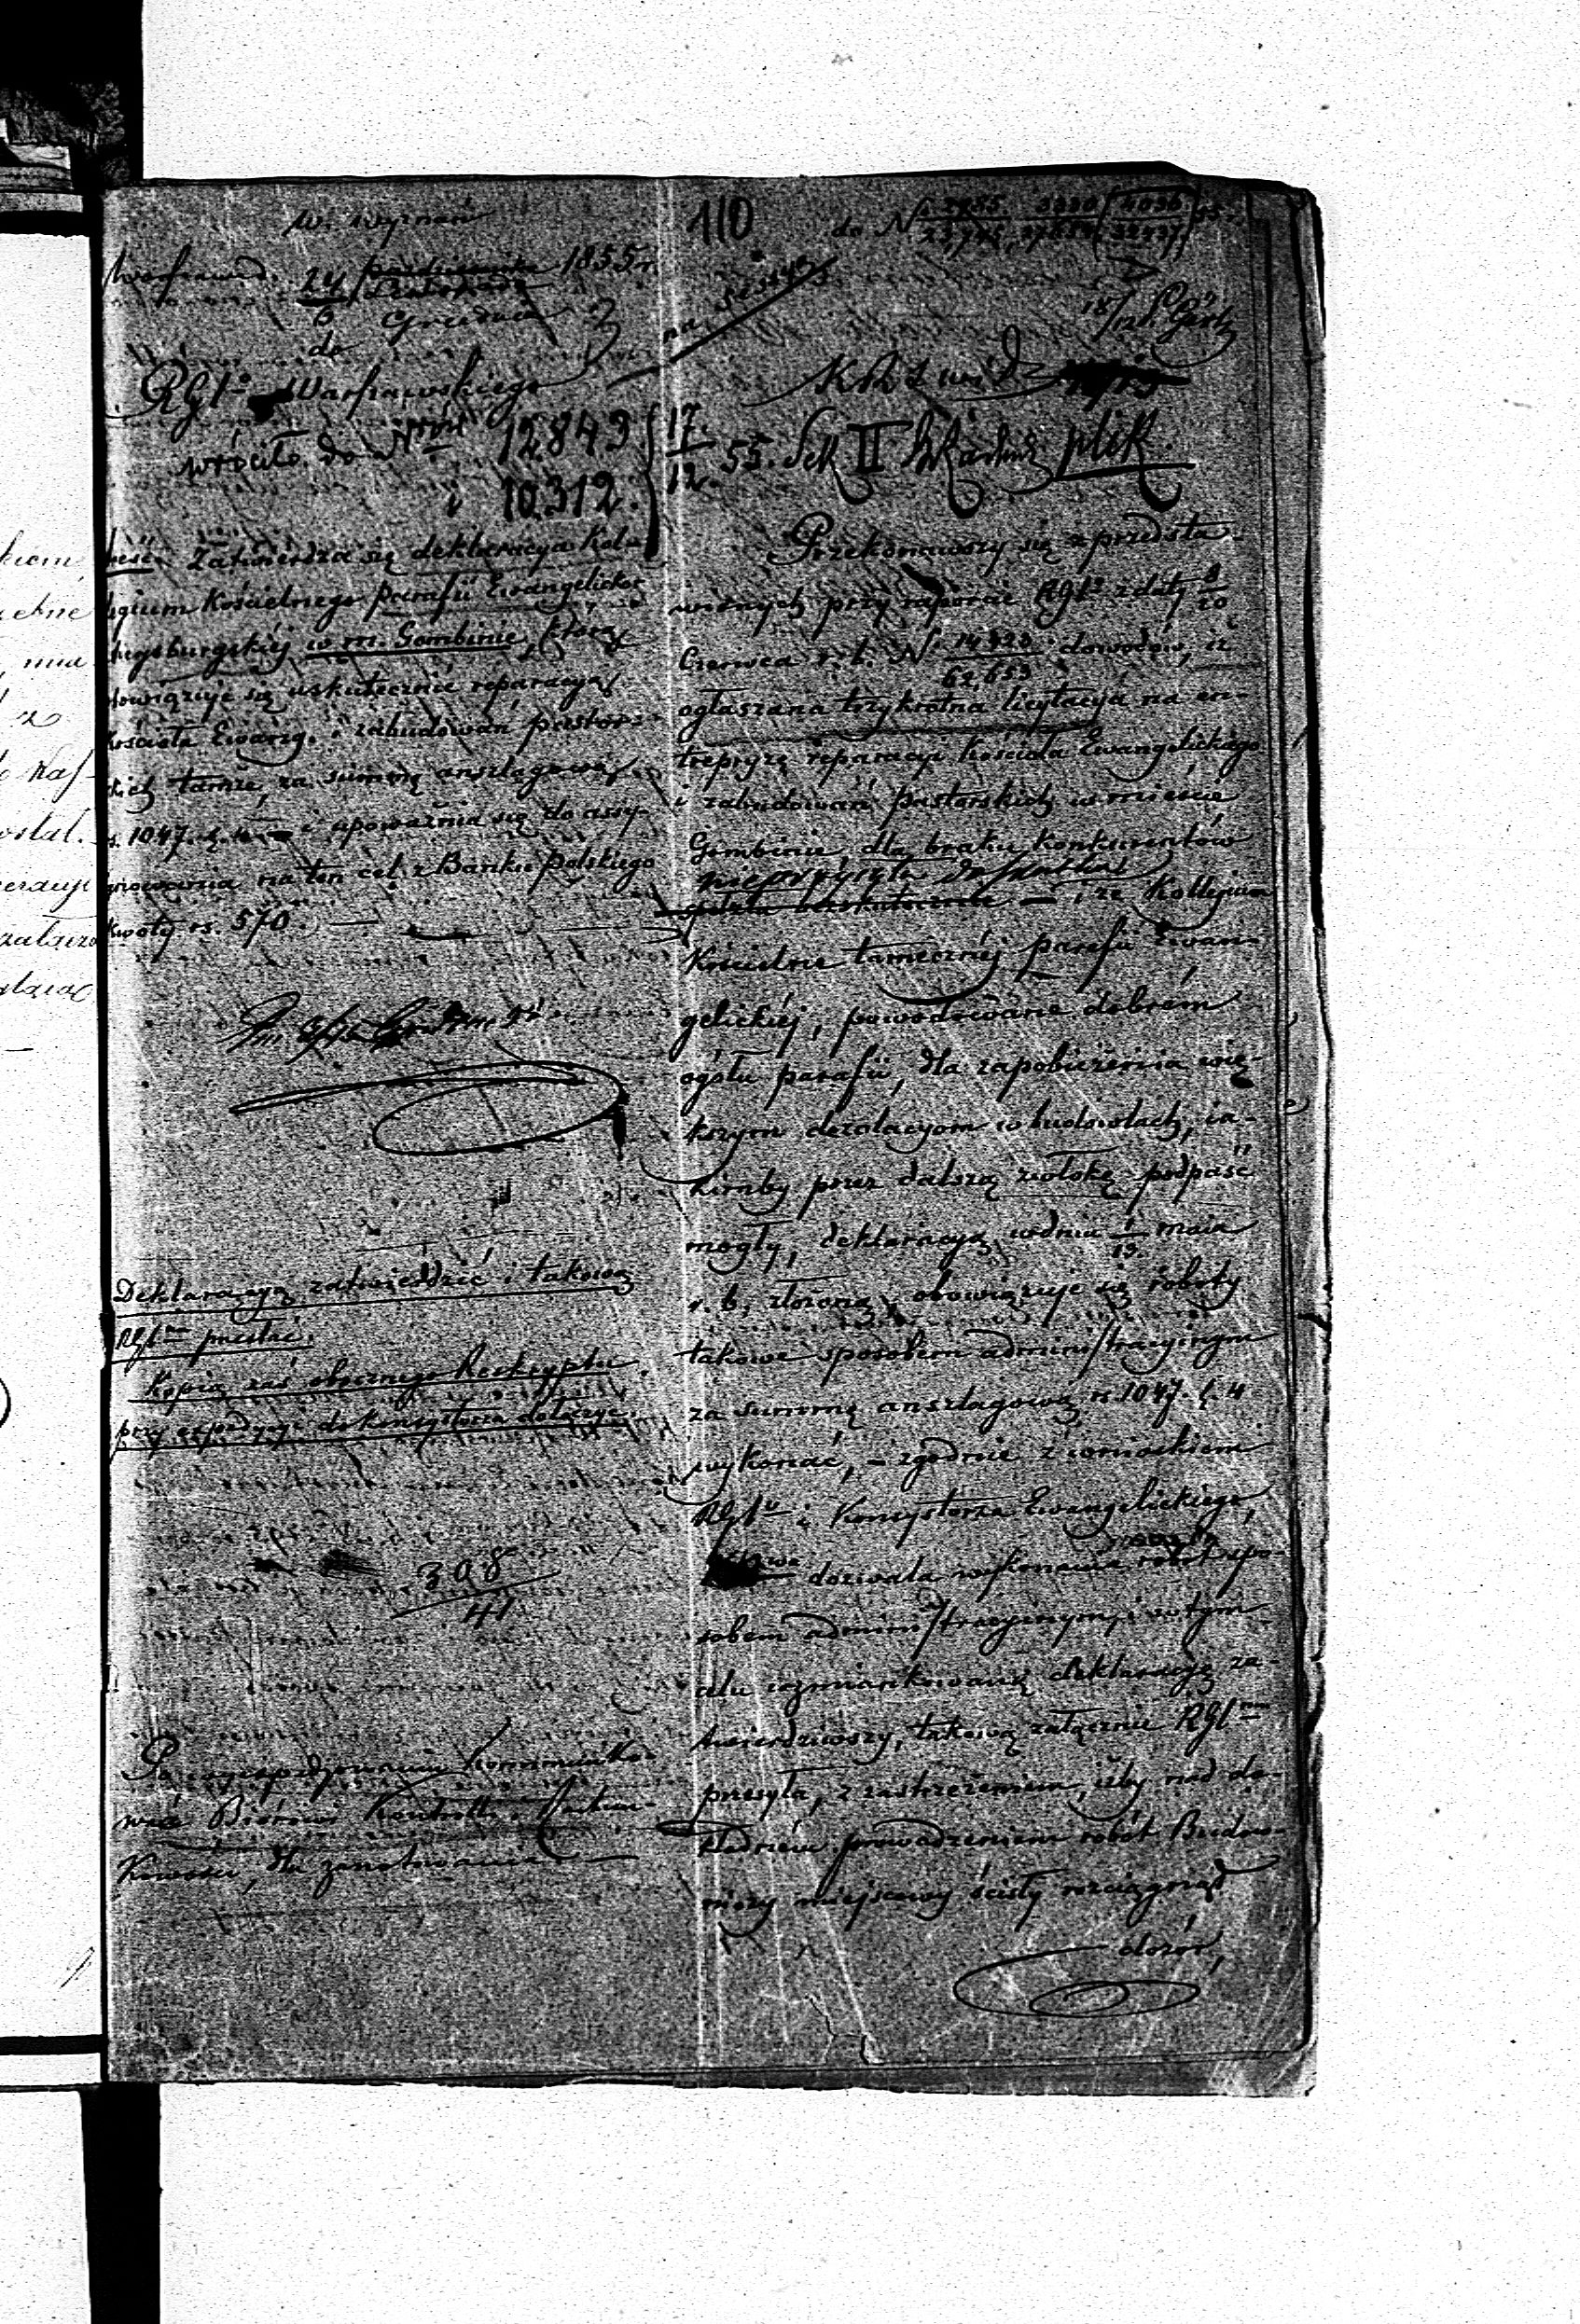 W. wyznań
110
do N 2985 3330 4036 55
Warszawa d. 24 Października 1855 r.
Listopada
6 Grudnia
do
Rgtu Warszawskiego
wróciło do Nrów 12849 17. 55. Sek II plik
i 10312. 12.
treść. Zatwierdza się deklaracya Kole-
gium Kościelnego parafii Ewangelicko
Augsburgskiéj w m. Gombinie, które
obowiązuje się uskutecznić reparacyą
Kościoła Ewang. i zabudowań pastor-
skich tamże, za summę anszlagową
rs. 1047. k. 4 i upoważnia się do assy-
gnowania na ten cel z Banku Polskiego
kwoty rs. 570.
Deklaracyą zatwierdzić i takową
Rgtwi przesłać.
Kopią zaś obecnego Reskryptu
przy expedycyi do Konsystorza dołączyć.
308
41
Po wyexpedjowaniu Kommuniko-
wać Biórowi Kontrolli i Rachun-
kowości, dla zanotowania
18/12
Przekonawszy się z przedsta-
wionych przy raporcie Rgtu z daty 8/20
Czerwca r. b. N 14828/62,653 dowodów, iż
ogłaszana trzykrotna licytacyá na en-
trepryzę reparacyi Kościoła Ewangelickiego
i zabudowań pastorskich w mieście
Gombinie dla braku konkurentów
nieprzyszła do skutku
spełzła bezskutecznie — i że Kollegium
Kościelne tamecznéj parafii Ewan-
gelickiéj, powodowane dobrém
ogółu parafii, dla zapobieżenia wię-
kszym dezolacyom w budowlach, ia-
kimby przez dalszą zwłokę podpaść
mogły, deklaracyą w dniu 1/13. maia
r. b. złożoną, obowiązuje się roboty
takowe sposobem administracyinym
za summę anszlagową rs 1047. k. 4
wykonać, — zgodnie z wnioskiem
Rgtu i Konsystorza Ewangelickiego,
dozwala wykonania robót spo-
sobem administracyinym, i w tym
celu wzmiankowaną deklaracyę za-
twierdziwszy, takową załącznie Rgtwi
przesyła, z zastrzeżeniem, iżby nad do-
kładném prowadzeniem robót Budow-
niczy miejscowy ścisły rozciągnął
dozór,